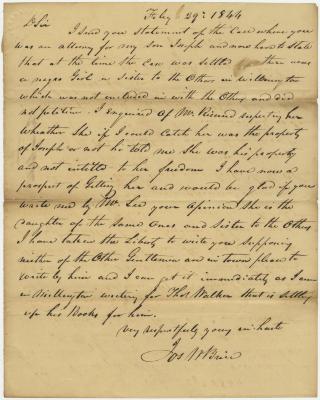 Feby 29th 1844
Dr Sir
I send you statement of the Case where you
was an attorney for my son Joseph and now have to state
that at the time the Case was settled there were
a negro Girl a Sister to the Others in Wilmington
which was not included in with the Others and did
not petition. I enquired of Mr. respecting her
wheather she if I could catch her was the property
of Joseph or not he told me she was his property
and not intitled to her freedom I have now a
prospect of Getting her and would be glad if you
write me by Mr. your opinion She is the
daughter of the same Ones and Sister to the Others
I have taken the Liberty to write you supposing
neither of the Other Gentlemen are in town please to
write by him and I can get it immediately as I am
in Wilmington writing for Thos Walker that is settling
up his Books for him.
Very respectfully yours in haste
Jos W